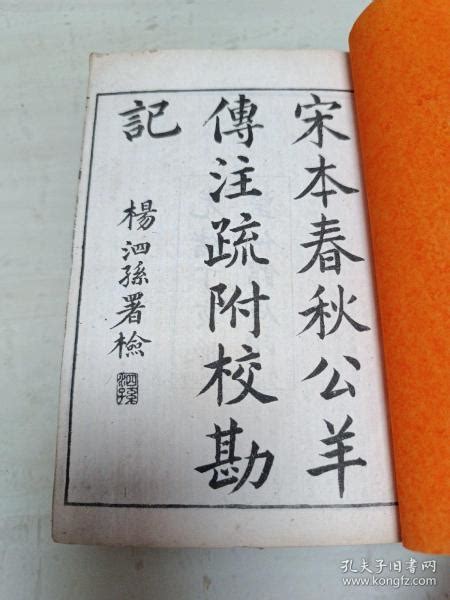 宋本春秋公羊
傳注疏附校勘
記
楊泗孫署檢
泗孫
孔夫子旧书网
www.kongfz.com